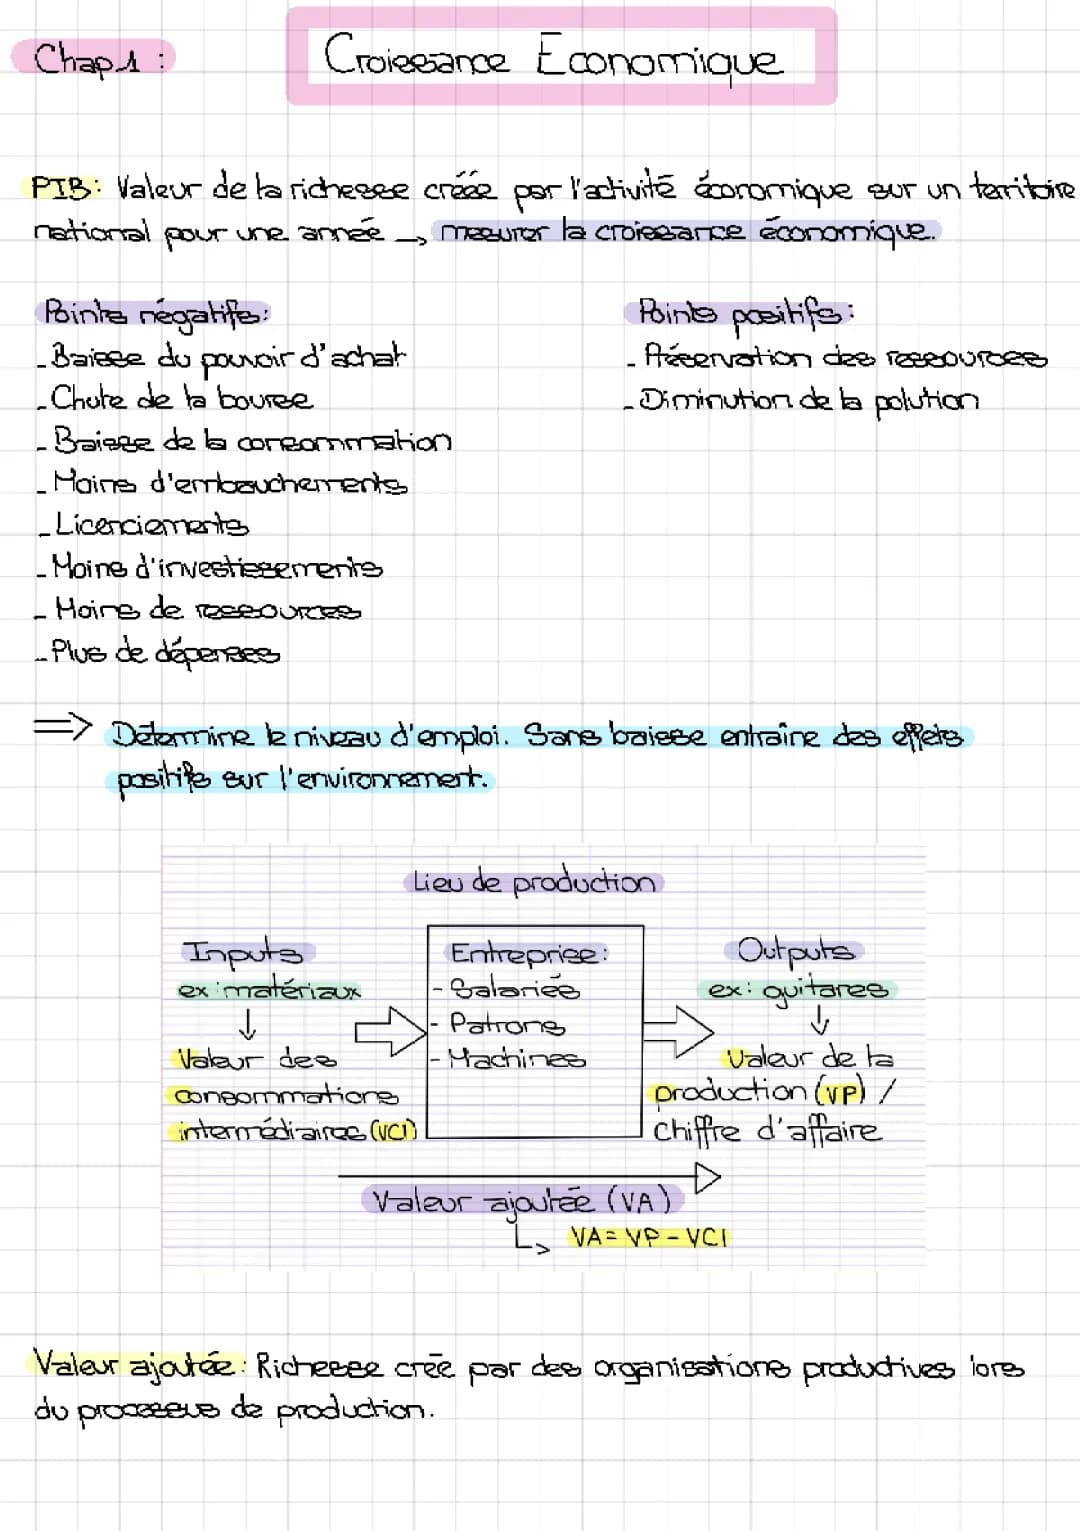 Chap 1 :
Croissance Economique
PIB: Valeur de la richesse créée par l'activité économique sur un territoire
national pour une année → mesurer la croissance économique.
Points négatifs:
- Baisse du pouvoir d'achat
- Chute de la bourse
- Baisse de la consommation
- Moins d'embauchements
- Licenciements
- Moins d'investissements
- Moins de ressources
- Plus de dépenses
Points positifs:
- Préservation des ressources
- Diminution de la polution
⇒ Détermine le niveau d'emploi. Sans baisse entraîne des effets
positifs sur l'environnement.
Lieu de production
Inputs
ex: matériaux
↓
Valeur des
consommations
intermédiaires (VCI)
Entreprise:
- Salariés
- Patrons
- Machines
Outputs
ex: guitares
↓
Valeur de la
production (VP) /
Chiffre d'affaire
Valeur ajoutée (VA)
↳ VA = VP - VCI
Valeur ajoutée: Richesse créé par des organisations productives lors
du processus de production.